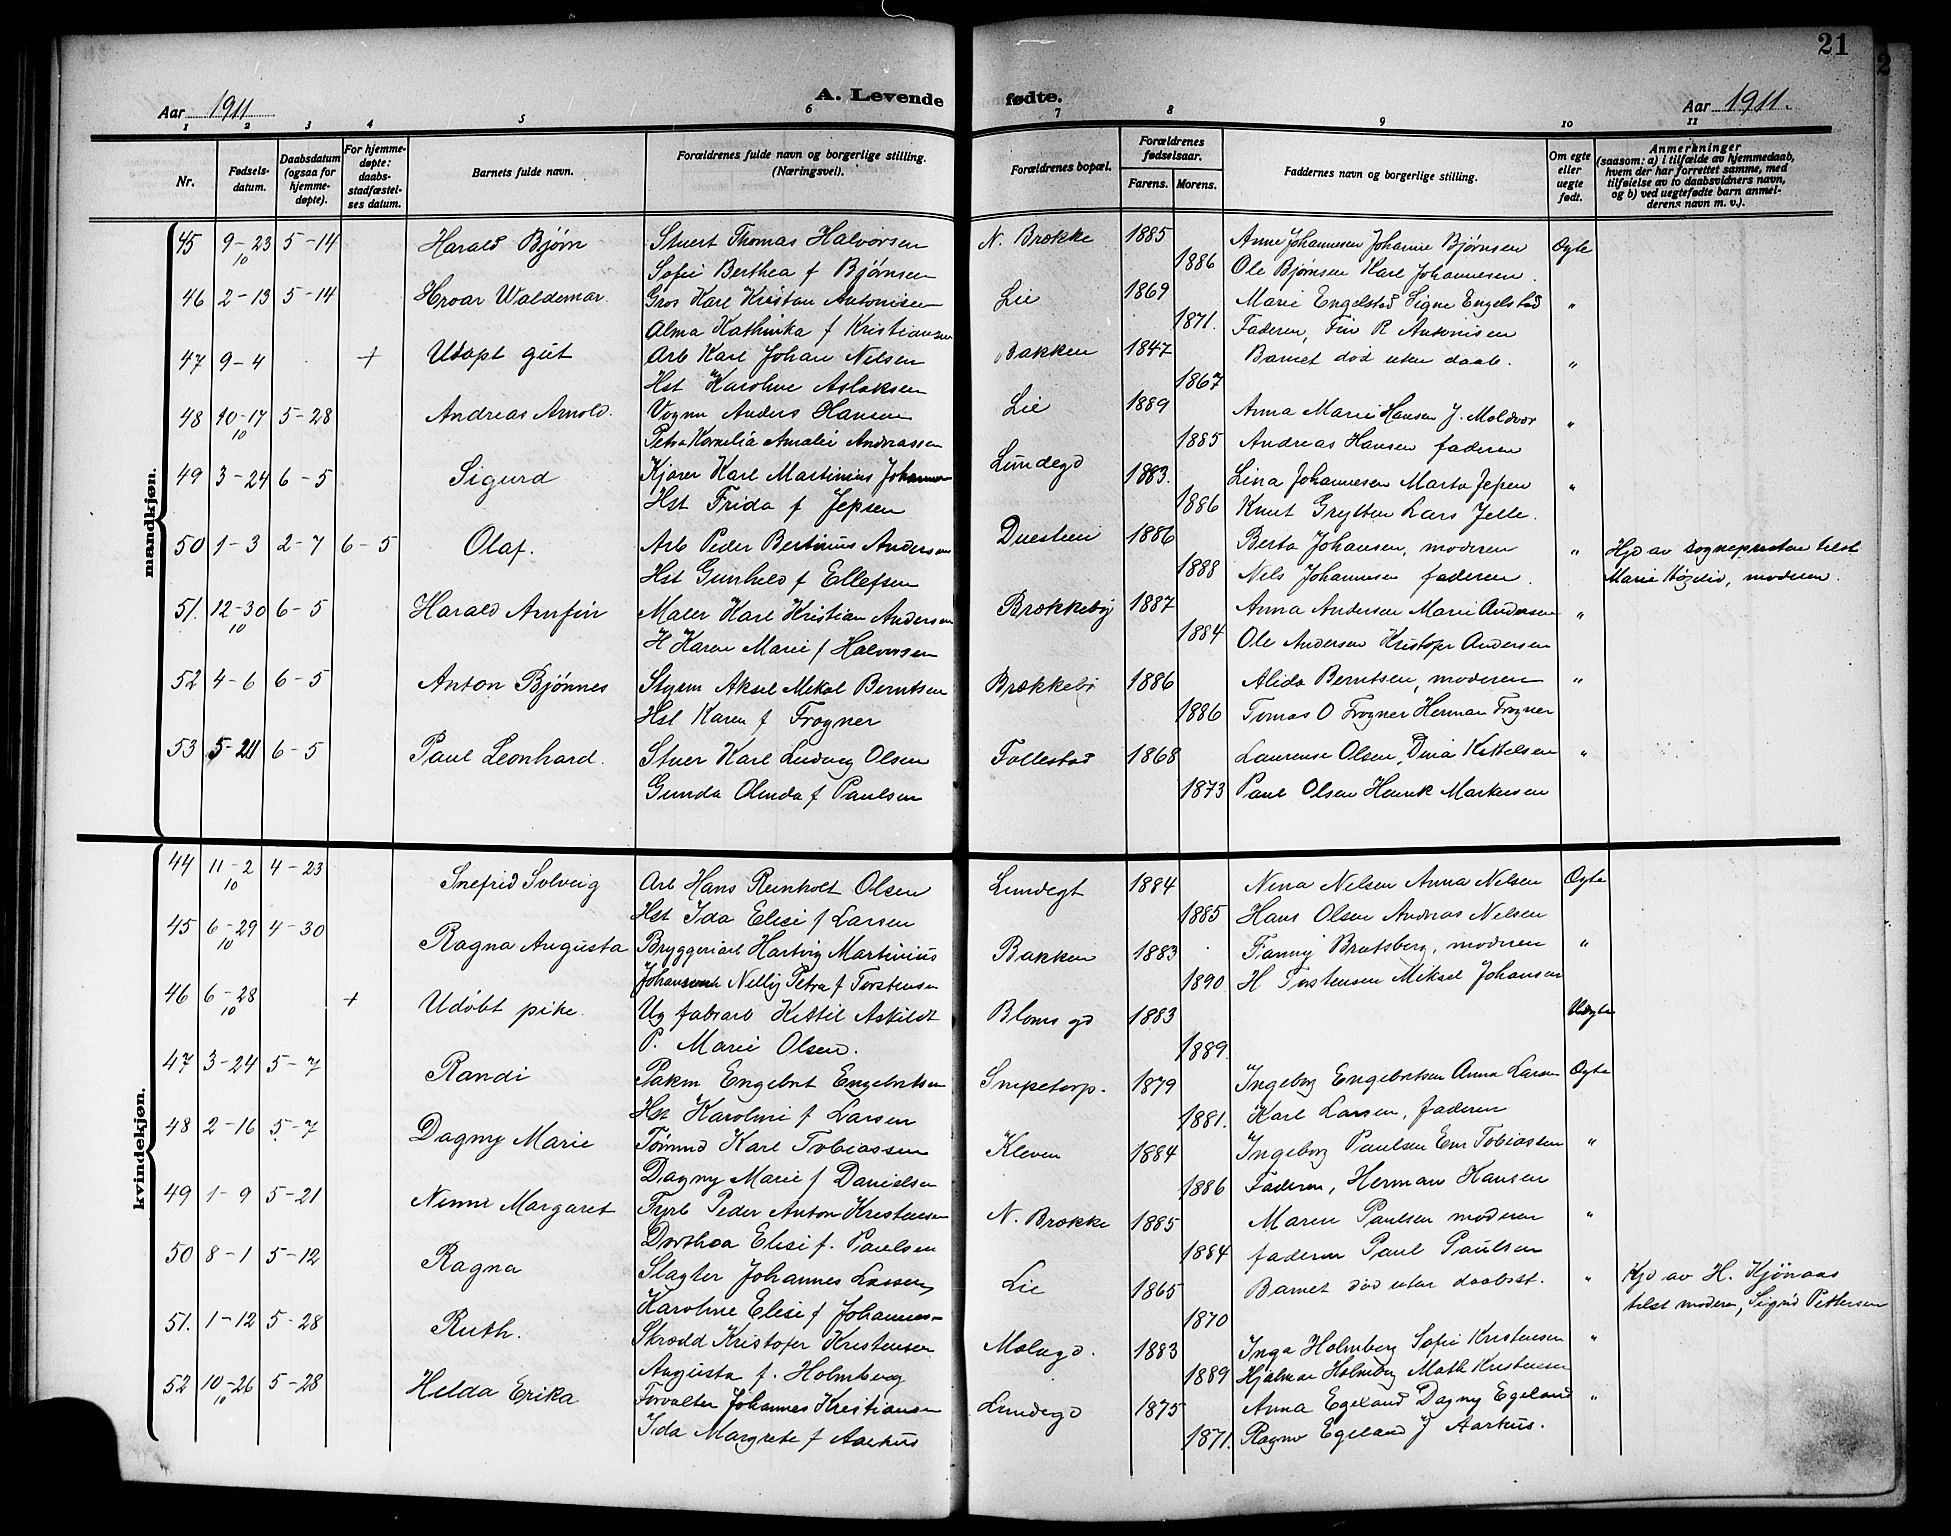 21
Aar 1911
A. Levende fødte.
Aar 1911.
1 2 3 4 5 6 7 8 9 10 11
Nr.
Fødsels-
datum.
Daabsdatum
(ogsaa for
hjemme-
døpte).
For hjemme-
døpte:
daabs-
stadfæstel-
ses datum.
Barnets fulde navn.
Forældrenes fulde navn og borgerlige stilling.
(Næringsvei).
Forældrenes bopæl.
Forældrenes
fødselsaar.
Farens. Morens.
Faddernes navn og borgerlige stilling.
Om egte
eller
uegte
født.
Anmerkninger
(saasom: a) i tilfælde av hjemmedaab,
hvem der har forrettet samme, med
tilføielse av to daabsvidners navn,
og b) ved uegtefødte barn anmel-
derens navn m. v.).
mandkjøn.
45 9-23/10 5-14 Harald Bjørn Stuert Thomas Halvorsen N. Brække 1885 Anne Johannesen Johanne Bjørnsen Egte
Sofie Berthea f Bjørnsen 1886 Ole Bjørnsen Karl Johannesen.
46 2-13 5-14 Hroar Waldemar. Gros Karl Kristian Antonisen Lie 1869 Marie Engelstad Signe Engelstad "
Alma Kathinka f Kristiansen 1871. Faderen, Fin R Antonisen
47 9-4 + Udøpt gut Arb Karl Johan Nilsen Bakken 1847 Barnet død uten daab. "
Hst Karoline Aslaksen 1867
48 10-17/10 5-28 Andreas Arnold. Vognm Anders Hansen Lie 1889 Anna Marie Hansen J. Moldvær "
Petra Kornelia Amalie Andreassen 1885 Andreas Hansen faderen
49 3-24 6-5 Sigurd Kjører Karl Martinius Johannesen Lundegd 1883. Lina Johannesen Marta Jepsen "
Hst Frida f Jepsen 1886 Knut Grytten Lars Jelle.
50 1-3 2-7 6-5 Olaf. Arb Peder Bertinius Andersen Duestien 1886 Berta Johansen, moderen " Hjd av sogneprsten tilst
Hst Gunhild f Ellefsen 1888 Nels Johannesen faderen. Marie Høgelid, moderen.
51. 12-30/10 6-5 Harald Arnfin Maler Karl Kristian Andersen Brækkebø 1887 Anna Andersen Marie Andersen "
H Karen Marie f Halvorsen 1884 Ole Andersen Kristofer Andersen
52 4-6 6-5 Anton Bjønnes Styrm Aksel Mikal Berntsen Brækkebø 1886 Alida Berntsen, moderen "
Hst Karen f Frogner 1886 Tomas O Frogner Herman Frogner
53 5-21 6-5 Paul Leonhard. Stuer Karl Ludvig Olsen Follestad 1868 Laurense Olsen, Dina Kittelsen "
Gunda Olinda f Paulsen 1873 Paul Olsen Henrik Markussen
kvindekjøn.
44 11-2/10 4-23 Snefrid Solveig Arb Hans Reinholt Olsen Lundegt 1884 Nina Nelsen Anna Nelsen Egte
Hst Ida Elise f Larsen 1885 Hans Olsen Andreas Nelsen
45 6-29/10 4-30 Ragna Augusta Bryggeriarb Hartvig Martinius Bakken 1883 Fanny Bratsberg, moderen "
Johansen Nelly Petra f Torstensen 1890 H Torstensen Mikael Johansen
46 6-28/10 + Udøbt pike. Ug fabrarb Kittil Askildt Bloms gd 1883 Uegte
P. Marie Olsen. 1889.
47 3-24 5-7 Randi Pakm Engebret Engebretsen Snipetorp. 1879 Ingeborg Engebretsen Anna Larsen Egte
Hst Karoline f Larsen 1881. Karl Larsen, faderen
48 2-16 5-7 Dagny Marie Tømmd Karl Tobiassen Kleven 1884 Ingeborg Paulsen Em Tobiassen "
Dagny Marie f Danielsen 1886 Faderen, Herman Hansen
49 1-9 5-21 Nimmi Margaret Fyrb Peder Anton Kristensen N. Brække 1885 Maren Paulsen moderen "
Dorthea Elise f. Paulsen 1884 faderen Paul Paulsen
50 8-1 5-12 Ragna Slagter Johannes Lassen Lie 1865 Barnet død uten daabsst. " Hjd av H. Kjønaas
Karoline Elise f Johannes- 1870 tilst moderen, Sigrid Pettersen
51. 1-12 5-28 Ruth. Skrædd Kristofer Kristensen Mælagd. 1883 Inga Holmberg Sofie Kristensen "
Augusta f. Holmberg 1889 Hjalmar Holmberg Math Kristensen
52 10-26/10 5-28 Helda Erika Forvalter Johannes Kristiansen Lundegd 1875 Anna Egeland Dagny Egeland "
Ida Margrete f Aarhus 1871. Ragnv Egeland J Aarhus.